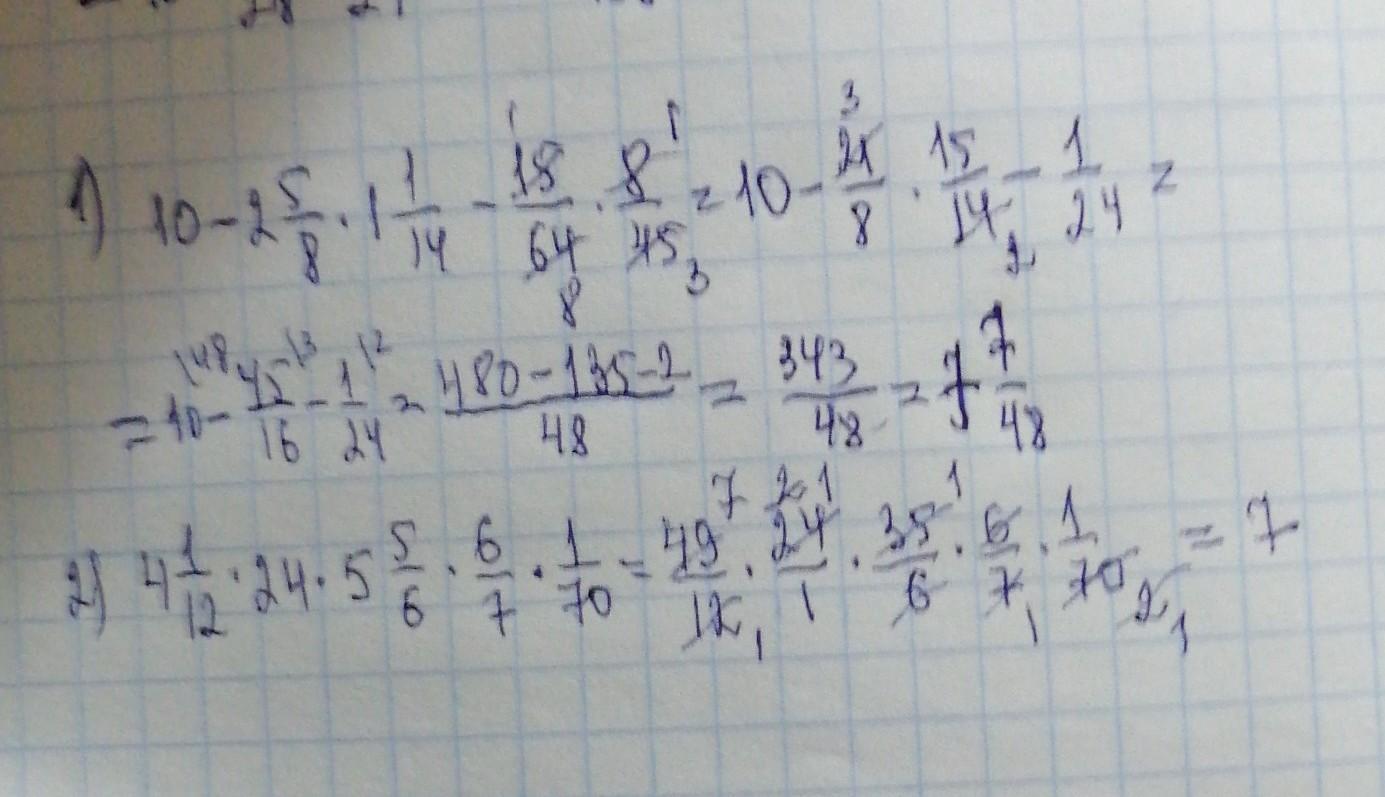 1) 10 - 2 5/8 · 1 1/14 - 18/64 · 8/45 = 10 - 21/8 · 15/14 - 1/24 =
= 10 - 45/16 - 1/24 = 480-135-2/48 = 343/48 = 7 7/48
2) 4 1/12 · 24 · 5 5/6 · 6/7 · 1/70 = 49/12 · 24/1 · 35/6 · 6/7 · 1/70 = 7